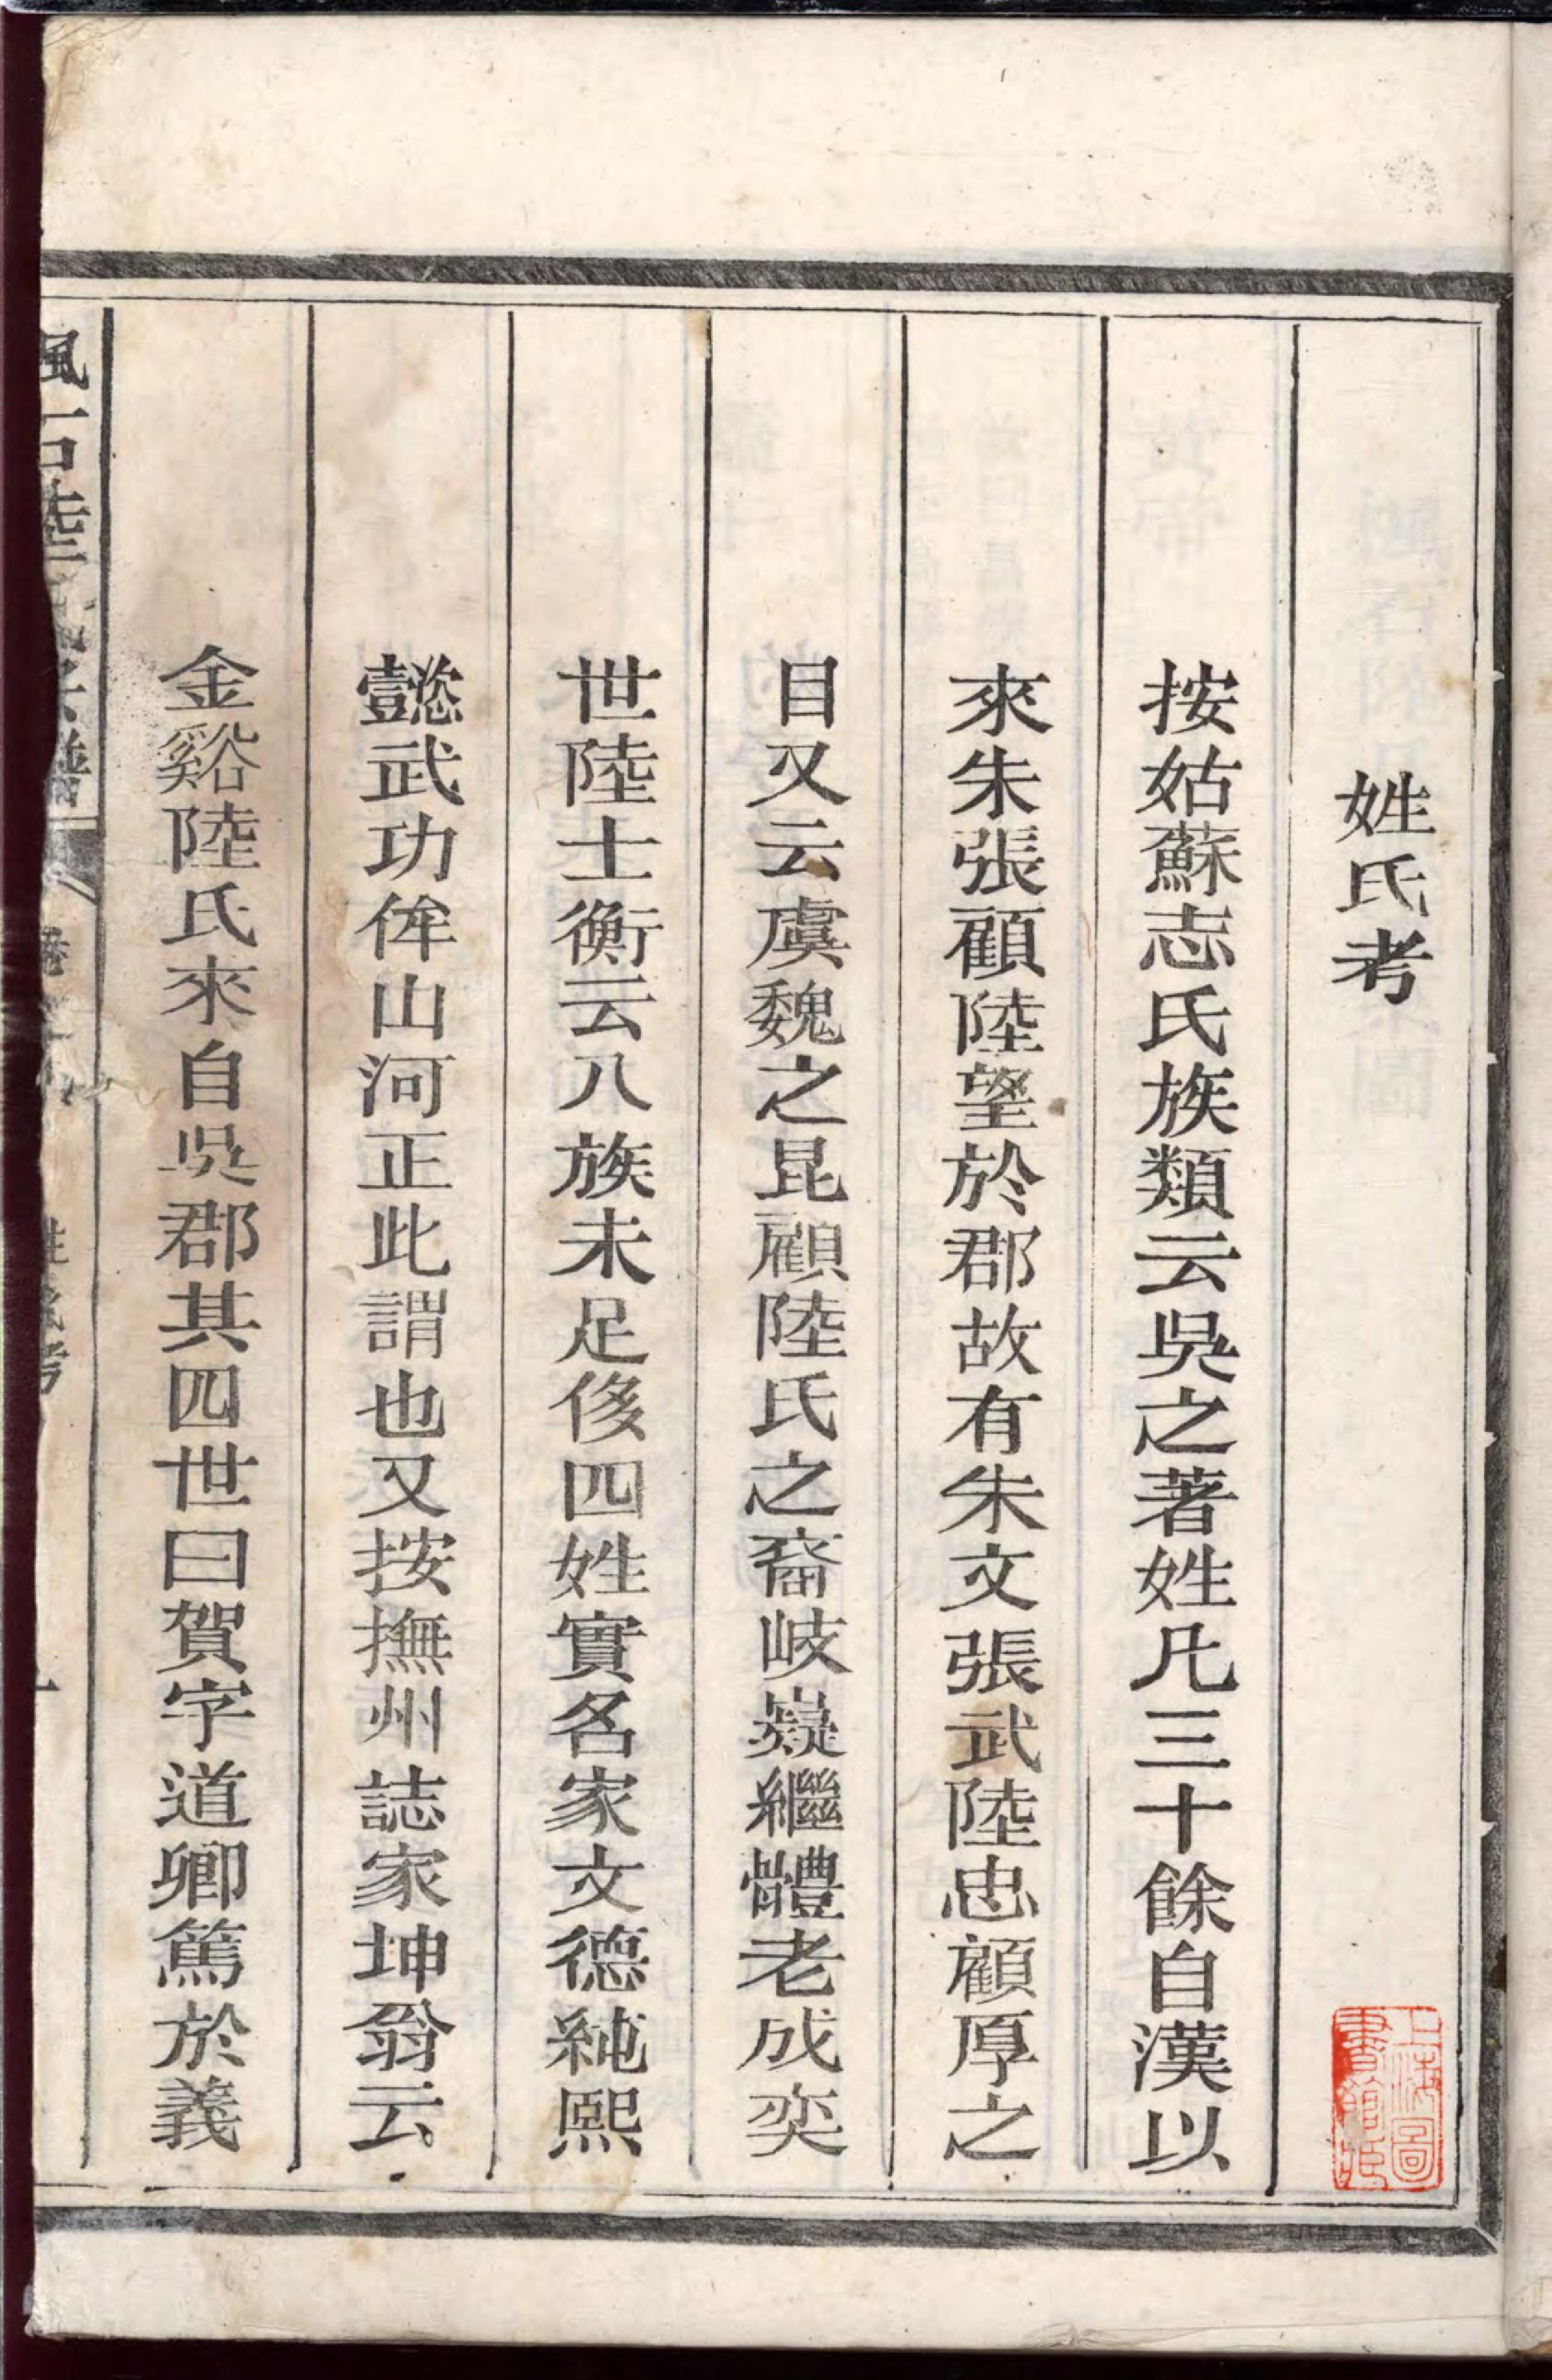 姓氏考
按姑蘇志氏族類云吳之著姓凡三十餘自漢以
來朱張顧陸望於郡故有朱文張武陸忠顧厚之
目又云虞魏之昆顧陸氏之裔岐嶷繼體老成奕
世陸士衡云八族未足侈四姓實名家文德純熙
懿武功侔山河正此謂也又按撫州誌家坤翁云
金谿陸氏來自吳郡其四世曰賀字道卿篤於義
姓氏考
上海圖書館藏